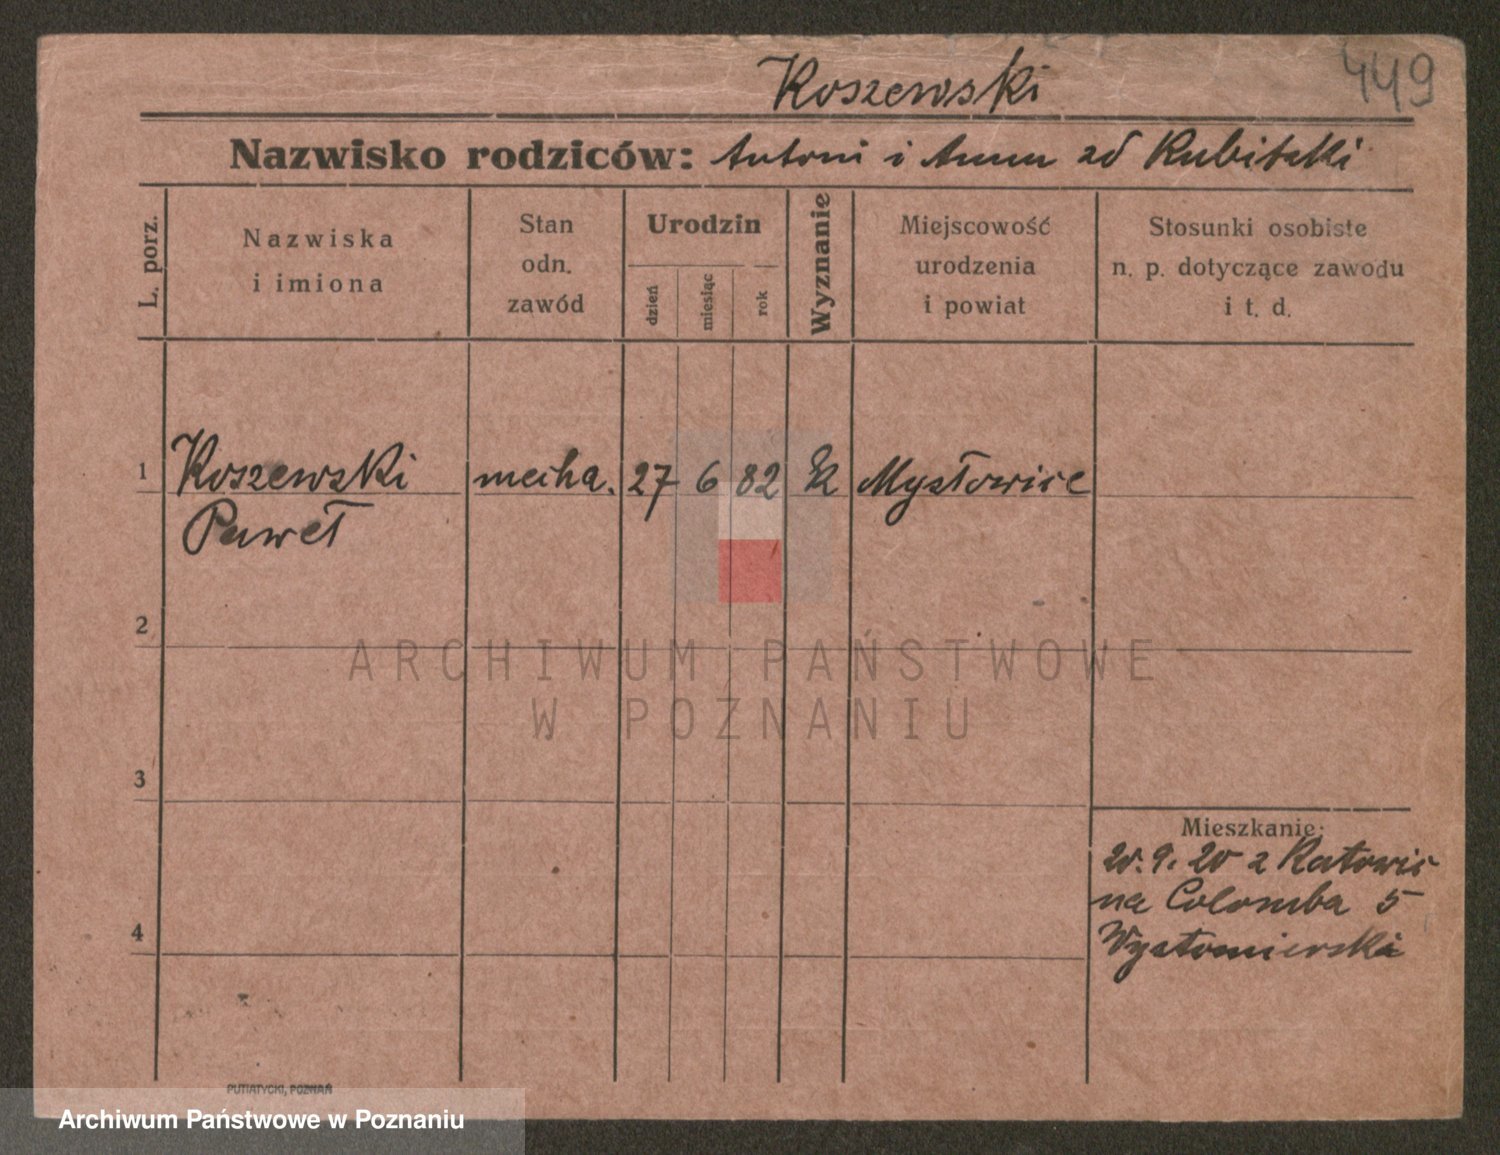 Koszewski
449
Nazwisko rodziców: Antoni i Anna zd Kubitzki
L. porz.
Nazwiska
i imiona
Stan
odn.
zawód
Urodzin
dzień
miesiąc
rok
Wyznanie
Miejscowość
urodzenia
i powiat
Stosunki osobiste
n. p. dotyczące zawodu
i t. d.
1 Koszewski mecha. 27 6 82 Mysłowice
Paweł
2
3
4
Mieszkanie:
20. 9. 20 z Katowic
na Colomba 5
PUTIATYCKI, POZNAŃ
ARCHIWUM PAŃSTWOWE
W POZNANIU
Archiwum Państwowe w Poznaniu